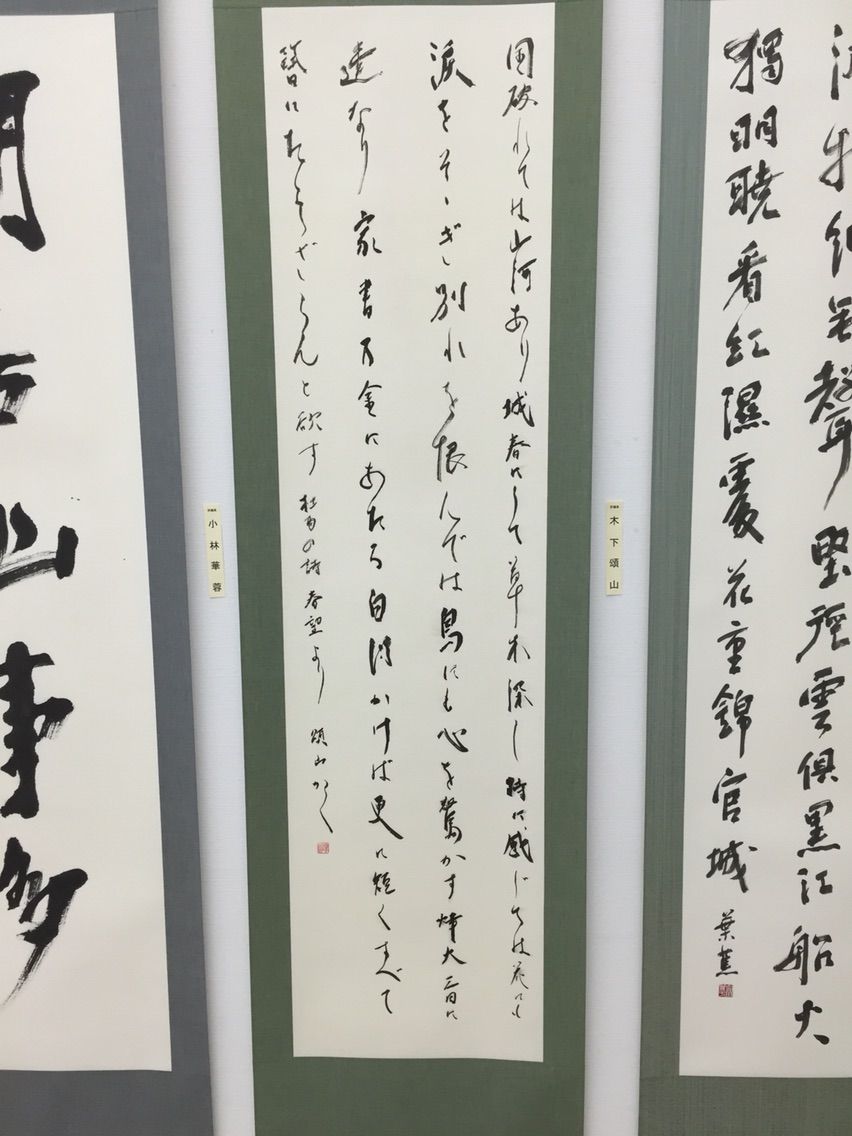 潤物細無聲野徑雲俱黑江船火
獨明曉看紅濕處花重錦官城 葉蕉
木下頌山
国破れては山河あり城春にして草木深し時に感じては花にも
涙をそゝぎ別れを恨んでは鳥にも心を驚かす烽火三月に
連なり家書万金にあたる白頭かけば更に短くすべて
簪にたえざらんと欲す 杜甫の詩春望より 頌山かく
小林華蓉
山事多